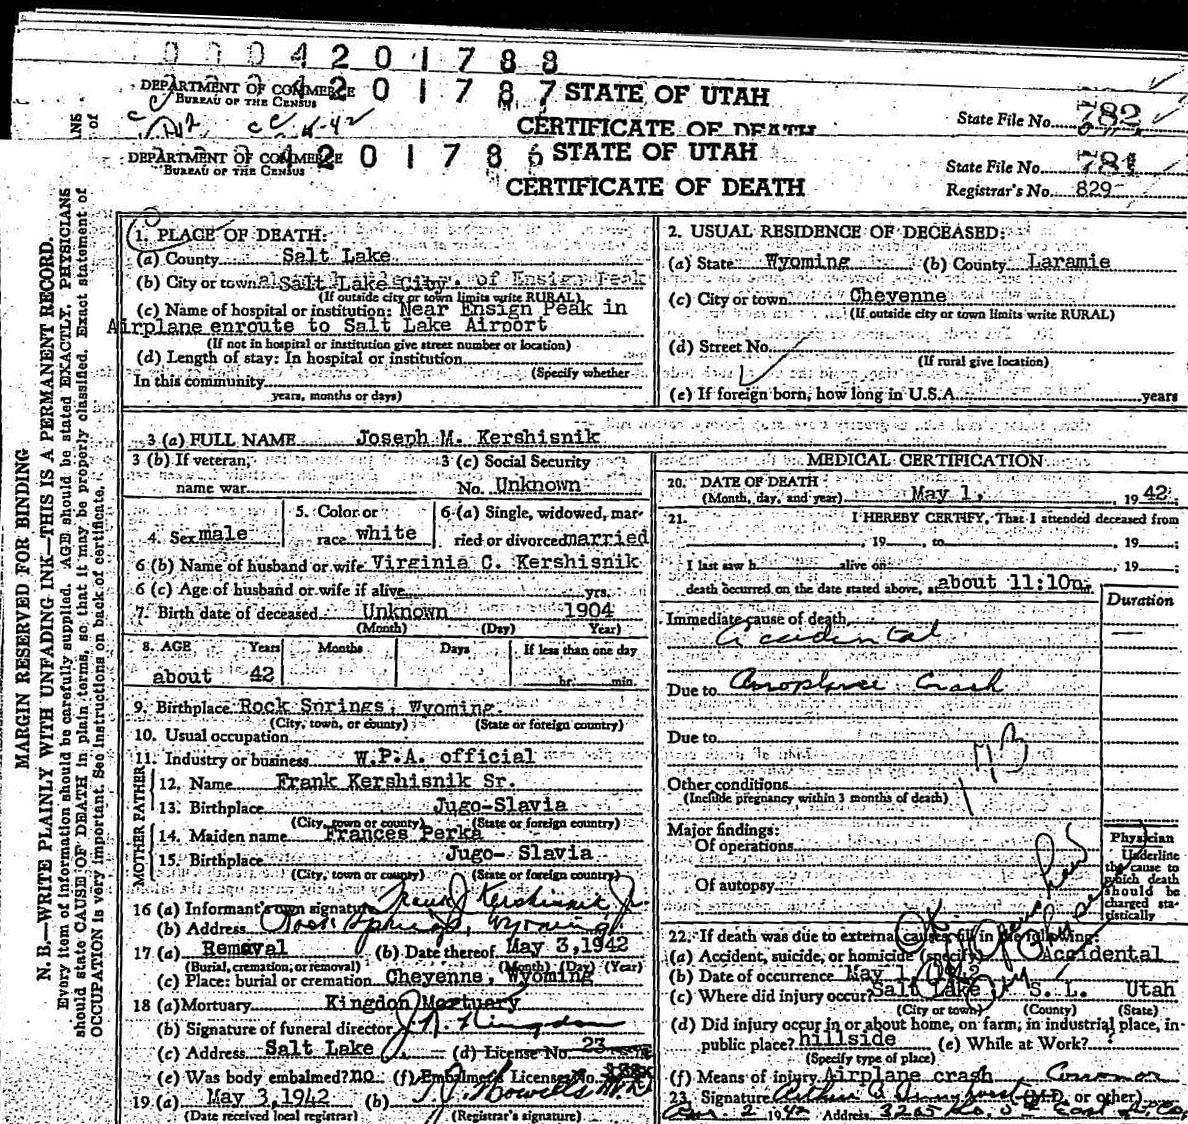 0004201788
DEPARTMENT OF COMMERCE
BUREAU OF THE CENSUS
4201787
STATE OF UTAH
CERTIFICATE OF DEATH
State File No. 782
DEPARTMENT OF COMMERCE
BUREAU OF THE CENSUS
4201786
STATE OF UTAH
CERTIFICATE OF DEATH
State File No. 781
Registrar's No. 829
MARGIN RESERVED FOR BINDING
N. B.—WRITE PLAINLY WITH UNFADING INK—THIS IS A PERMANENT RECORD.
Every item of information should be carefully supplied. AGE should be stated EXACTLY. PHYSICIANS
should state CAUSE OF DEATH in plain terms, so that it may be properly classified. Exact statement of
OCCUPATION is very important. See instructions on back of certificate.
1. PLACE OF DEATH:
(a) County Salt Lake
(b) City or town Salt Lake City. of Ensign Peak
(If outside city or town limits write RURAL)
(c) Name of hospital or institution: Near Ensign Peak in
Airplane enroute to Salt Lake Airport
(If not in hospital or institution give street number or location)
(d) Length of stay: In hospital or institution
(Specify whether
In this community
years, months or days)
2. USUAL RESIDENCE OF DECEASED:
(a) State Wyoming (b) County Laramie
(c) City or town Cheyenne
(If outside city or town limits write RURAL)
(d) Street No.
(If rural give location)
(e) If foreign born, how long in U.S.A. years
3 (a) FULL NAME Joseph M. Kershisnik
3 (b) If veteran,
name war
3 (c) Social Security
No. Unknown
4. Sex male
5. Color or
race white
6 (a) Single, widowed, mar-
ried or divorced married
6 (b) Name of husband or wife Virginia C. Kershisnik
6 (c) Age of husband or wife if alive yrs.
7. Birth date of deceased Unknown 1904
(Month) (Day) Year)
8. AGE Years Months Days If less than one day
about 42 hr. min.
9. Birthplace Rock Springs, Wyoming.
(City, town, or county) (State or foreign country)
10. Usual occupation
11. Industry or business W.P.A. official
FATHER
12. Name Frank Kershisnik Sr.
13. Birthplace Jugo-Slavia
(City, town or county) (State or foreign country)
MOTHER
14. Maiden name Frances Perka
15. Birthplace Jugo- Slavia
(City, town or county) (State or foreign country)
16 (a) Informant's own signature Frank J Kershisnik Jr.
(b) Address Rock Springs, Wyoming
17 (a) Removal (b) Date thereof May 3,1942
(Burial, cremation, or removal) (Month) (Day) (Year)
(c) Place: burial or cremation Cheyenne, Wyoming
18 (a) Mortuary Kingdon Mortuary
(b) Signature of funeral director Kingdon
(c) Address Salt Lake (d) License No. 23
(e) Was body embalmed? no (f) Embalmer's License No.
19 (a) May 3,1942 (b)
(Date received local registrar) (Registrar's signature)
MEDICAL CERTIFICATION
20. DATE OF DEATH
(Month, day, and year) May 1, 1942;
21. I HEREBY CERTIFY, That I attended deceased from
, 19 , to , 19 ;
I last saw h alive on , 19 ;
death occurred on the date stated above, at about 11:10 m.
Duration
Immediate cause of death
Accidental
Due to Aeroplane Crash
Due to
173
Other conditions
(Include pregnancy within 3 months of death)
Major findings:
Of operations
Of autopsy
Physician
Underline
the cause to
which death
should be
charged sta-
tistically
22. If death was due to external causes fill in the following:
(a) Accident, suicide, or homicide (specify) Accidental
(b) Date of occurrence May 1, 1942
(c) Where did injury occur? Salt Lake S. L. Utah
(City or town) (County) (State)
(d) Did injury occur in or about home, on farm, in industrial place, in
public place? hillside (e) While at Work? ?
(Specify type of place)
(f) Means of injury Airplane crash
23. Signature (M.D. or other)
2 1942 Address